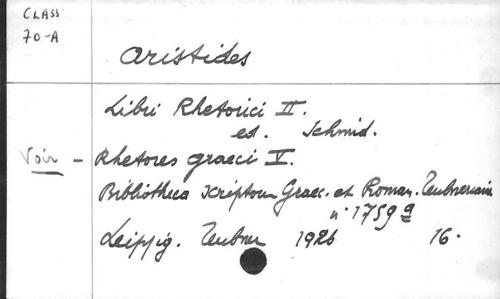 CLASS
70-A
Aristides
Libri Rhetorici II.
ed. Schmid.
Voir - Rhetores graeci V.
Bibliotheca scriptorum Graec. et Roman. Teubneriana
n° 1759 a
Leipzig. Teubner 1926 16.